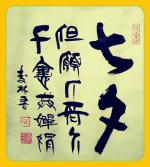 七夕
但願人長久
千里共嬋娟